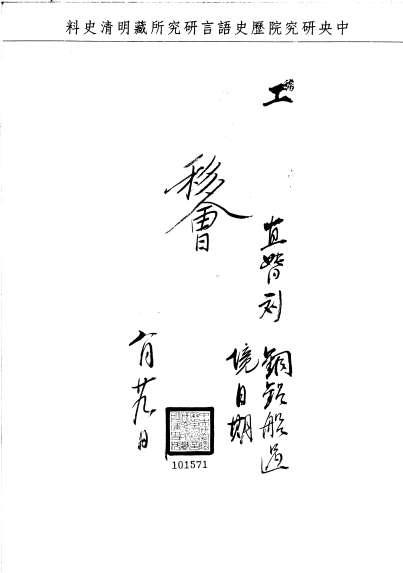 中央研究院歷史語言研究所藏明清史料
稽
工
直督劉
銅鉛船過
境日期
移會
月廿九日
101571